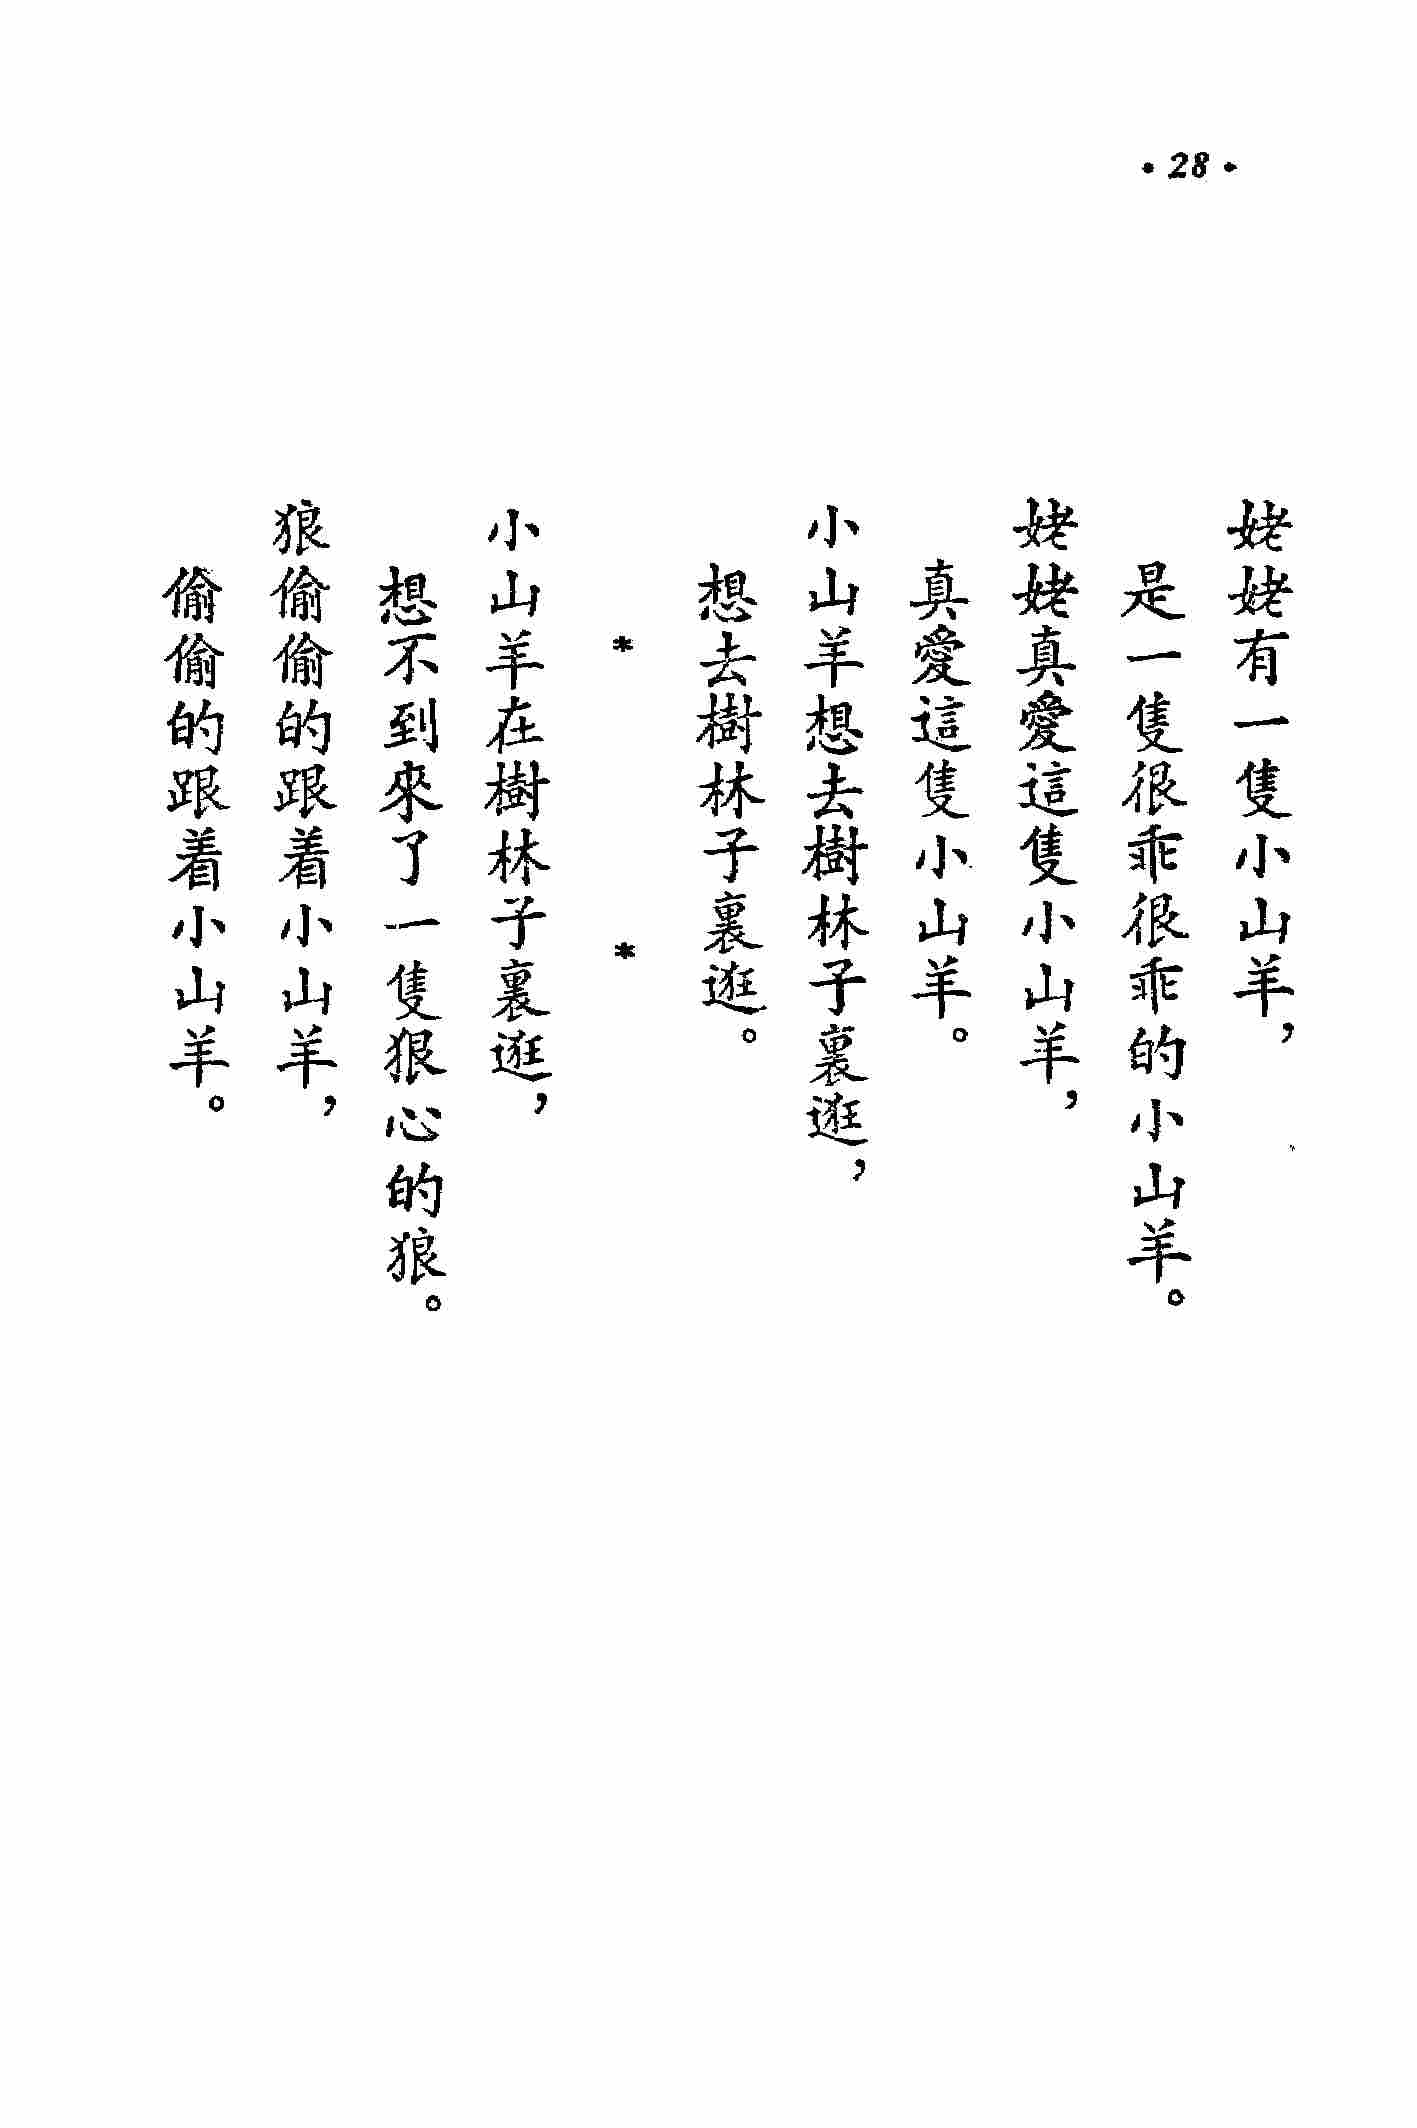 • 28 •
姥姥有一隻小山羊，
是一隻很乖很乖的小山羊。
姥姥真愛這隻小山羊，
真愛這隻小山羊。
小山羊想去樹林子裏逛，
想去樹林子裏逛。
* *
小山羊在樹林子裏逛，
想不到來了一隻狠心的狼。
狼偷偷的跟着小山羊，
偷偷的跟着小山羊。